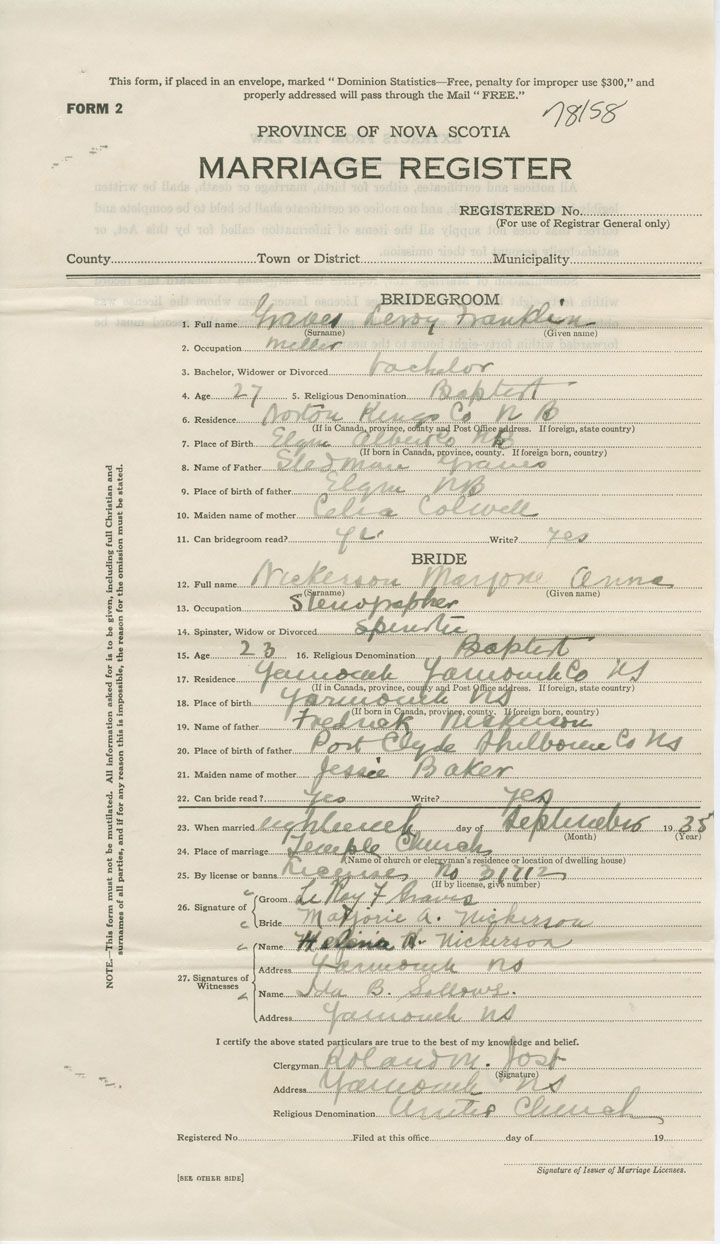 This form, if placed in an envelope, marked “ Dominion Statistics—Free, penalty for improper use $300,” and
properly addressed will pass through the Mail “ FREE.”
FORM 2
78158
PROVINCE OF NOVA SCOTIA
MARRIAGE REGISTER
REGISTERED No.
(For use of Registrar General only)
County Town or District Municipality
BRIDEGROOM
1. Full name Graves Leroy Franklin
(Surname) (Given name)
2. Occupation Miller
3. Bachelor, Widower or Divorced bachelor
4. Age 27 5. Religious Denomination Baptist
6. Residence Norton Kings Co N B
(If in Canada, province, county and Post Office address. If foreign, state country)
7. Place of Birth Elgin Albert Co NB
(If born in Canada, province, county. If foreign born, country)
8. Name of Father Stedman Graves
9. Place of birth of father Elgin NB
10. Maiden name of mother Celia Colwell
11. Can bridegroom read? yes Write? yes
BRIDE
12. Full name Nickerson Marjorie Anna
(Surname) (Given name)
13. Occupation Stenographer
14. Spinster, Widow or Divorced Spinster
15. Age 23 16. Religious Denomination Baptist
17. Residence Yarmouth Yarmouth Co NS
(If in Canada, province, county and Post Office address. If foreign, state country)
18. Place of birth Yarmouth NS
(If born in Canada, province, county. If foreign born, country)
19. Name of father Fredrick Nickerson
20. Place of birth of father Port Clyde Shelbourne Co NS
21. Maiden name of mother Jessie Baker
22. Can bride read? yes Write? yes
23. When married eighteenth day of September 1935
(Month) (Year)
24. Place of marriage Temple Church
(Name of church or clergyman's residence or location of dwelling house)
25. By license or banns License No 31712
(If by license, give number)
26. Signature of
Groom LeRoy F Graves
Bride Marjorie A. Nickerson
27. Signatures of Witnesses
Name Helena R. Nickerson
Address Yarmouth NS
Name Ida B. Sollows.
Address Yarmouth NS
I certify the above stated particulars are true to the best of my knowledge and belief.
Clergyman Roland M. Jost
(Signature)
Address Yarmouth NS
Religious Denomination United Church
Registered No. Filed at this office day of 19
Signature of Issuer of Marriage Licenses.
[SEE OTHER SIDE]
NOTE.—This form must not be mutilated. All information asked for is to be given, including full Christian and
surnames of all parties, and if for any reason this is impossible, the reason for the omission must be stated.